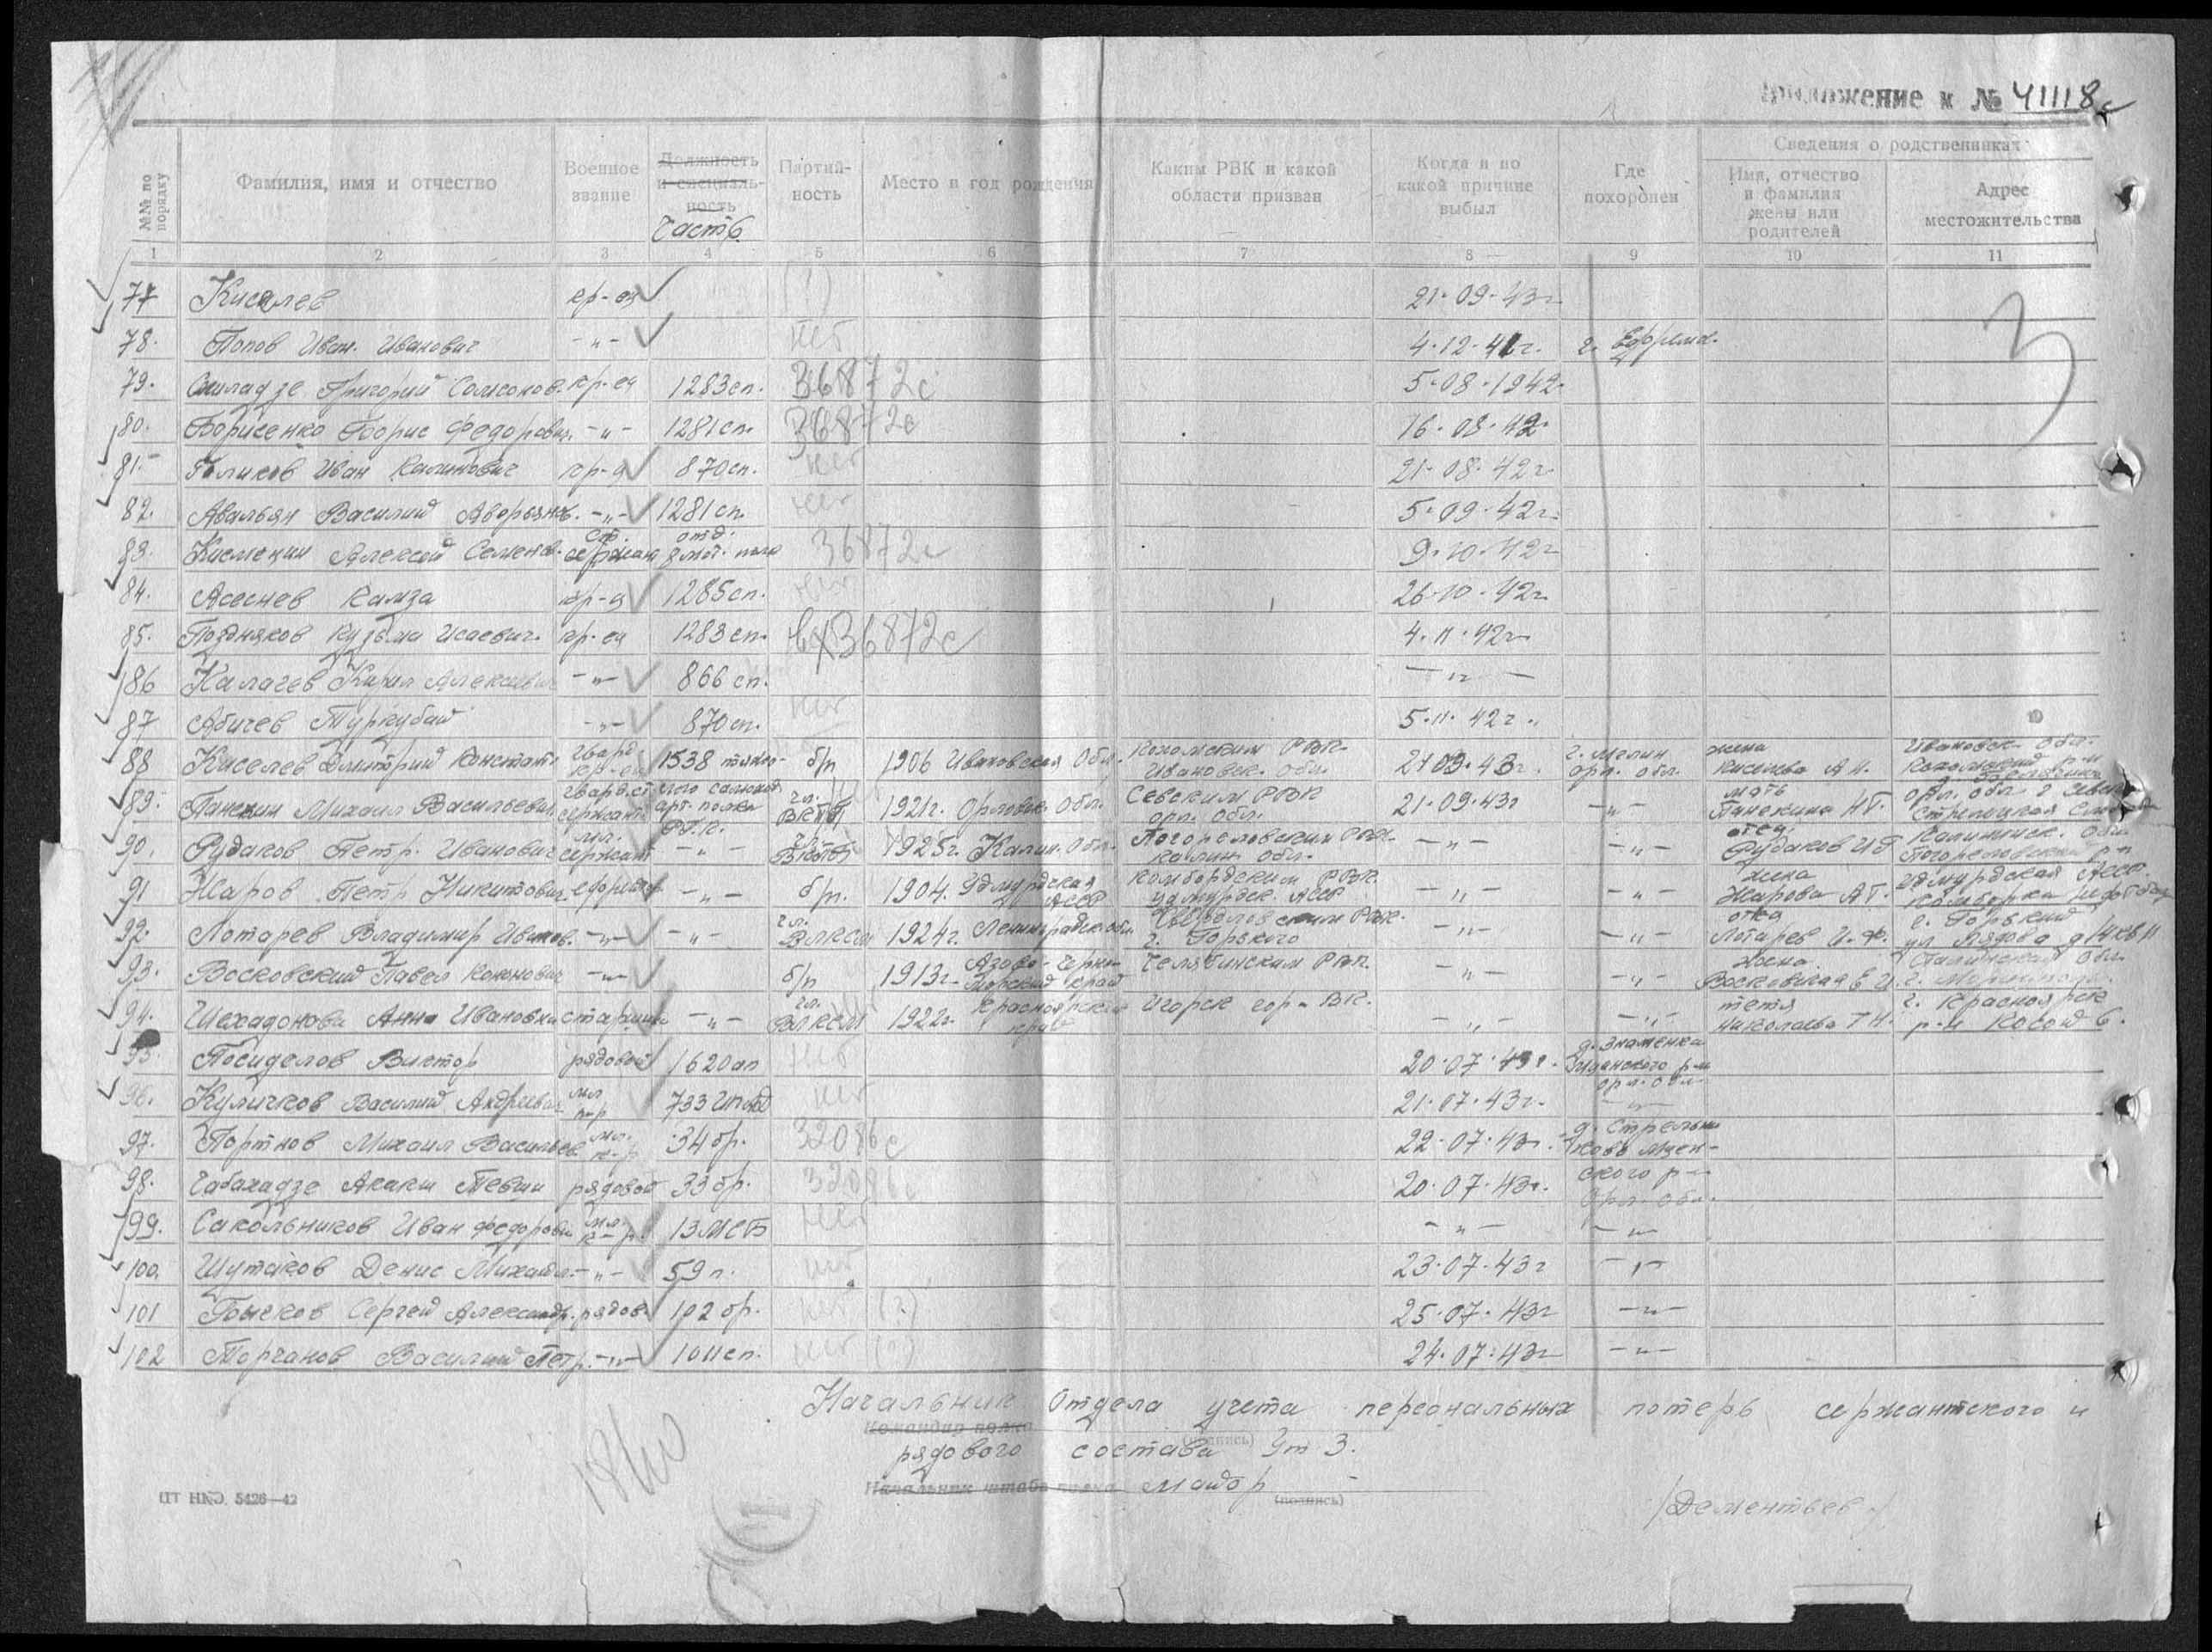 Приложение к № 41118с
№№ по порядку
Фамилия, имя и отчество
Военное звание
Должность и специальность
Часть
Партийность
Место и год рождения
Каким РВК и какой области призван
Когда и по какой причине выбыл
Где похоронен
Сведения о родственниках
Имя, отчество и фамилия жены или родителей
Адрес местожительства
1 2 3 4 5 6 7 8 9 10 11
77 Киселев кр-ец (?) 21.09.43г
78. Попов Иван Иванович -"- нет 4.12.41г. г. Ефремов
79. Григорий кр-ец 1283сп. 36872с 5.08.1942
80. Борисенко Борис Федорович -"- 1281сп. 36872с 16.08.42
81. Голиков Иван Калинович кр-ец 870сп. нет 21.08.42г
82. Авальян Василий -"- 1281сп. нет 5.09.42г.
83. Алексей Семенов. ст. сержант отд. 36872с 9.10.42г
84. Асеснев Камза кр-ец 1285сп. нет 26.10.42г
85. Поздняков Кузьма Исаевич кр-ец 1283сп. вх36872с 4.11.42г
86 Калачев Кирил Алексеевич -"- 866сп. -"-
87 Абичев Туркубай -"- 870сп. нет 5.11.42г.
88 Киселев Дмитрий Констант. гвард. кр-ец 1538 тяжел- б/п 1906 Ивановская обл. Кохомским РВК Ивановск. обл. 21.09.43г. г. Мглин орл. обл. жена Киселева А.И. Ивановск. обл.
89. Панекин Михаил Васильевич гвард. ст. сержант ого самоход арт. полка Р.Г.К. чл. ВКПб 1921г. Орловск. обл. Севским РВК орл. обл. 21.09.43г -"- мать Панекина Н.Г. орл. обл. г Севск Стрелецкая
90. Рудаков Петр Иванович мл. сержант -"- чл. ВКПб 1925г. Калин. обл. Погореловским РВК Калин. обл. -"- -"- отец Рудаков И.Г. Калининск. обл. Погореловский р-н
91 Жаров Петр Никитович ефрейтор -"- б/п. 1904. Удмурдская АССР Камбордским РВК. Удмурдск. АССР -"- -"- жена Жарова А.Г. Удмурдская АССР. Камборка
92. Лотарев Владимир Иванов. -"- -"- чл. ВЛКСМ 1924г. Ленинградск. обл. Свердловским РВК. г. Горького -"- -"- отец Лотарев И.Ф. г. Горький ул. Лядова д 14 кв 11
93. Восковский Павел Кононович -"- б/п 1913г. Азово-Черноморский край Челябинским РВК. -"- -"- жена Восковская Е.И. Сталинская обл. г. Мариуполь
94. Шехадонова Анна Ивановна старшина -"- чл. ВЛКСМ 1922г. Красноярский край Игарск гор. ВК. -"- -"- тетя Николаева Т.Н. г. Красноярск р-н Косой 6.
95. Посиделов Виктор рядовой 1620ап нет 20.07.43г. д. Знаменка Мценского р-на орл. обл.
96. Куличков Василий Андреевич мл к-р 733 нет 21.07.43г. -"-
97. Портнов Михаил Васильев. мл. к-р 34бр. 32086с 22.07.43г. д. Стрельниково Мценского р-на Орл. обл.
98. Чабахадзе Акаки рядовой 33бр. 32086с 20.07.43г.
99. Сакольников Иван Федорович мл. к-р. 13МСБ нет -"- -"-
100. Шутаков Денис Михайл. -"- 59п. нет 23.07.43г -"-
101 Бысков Сергей Александр. рядов. 102бр. нет (?) 25.07.43г -"-
102 Торчанов Василий Петр. -"- 1011сп. нет (?) 24.07.43г -"-
3
Начальник Отдела учета персональных потерь сержантского и
Командир полка (подпись)
рядового состава УтЗ.
Начальник штаба полка майор (подпись)
/Дементьев/
ЦТ НКО 5426—42